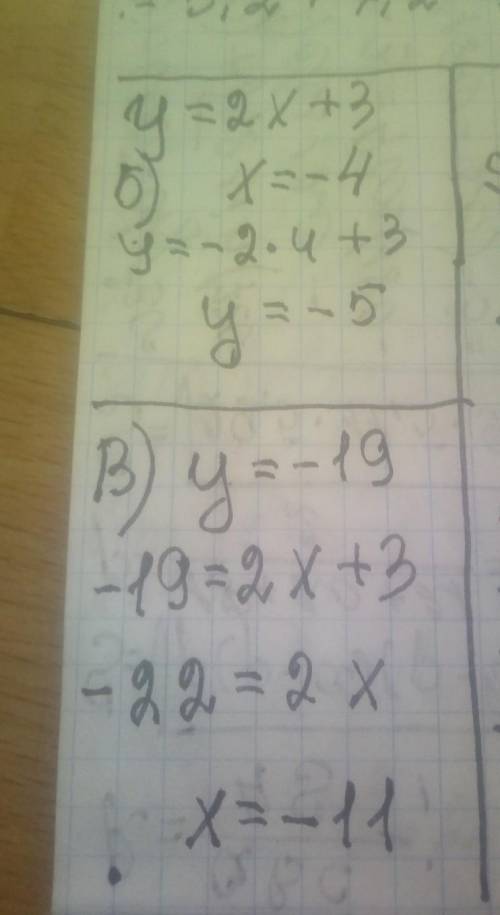 y = 2x + 3
б) x = -4
y = -2 · 4 + 3
y = -5
В) y = -19
-19 = 2x + 3
-22 = 2x
x = -11